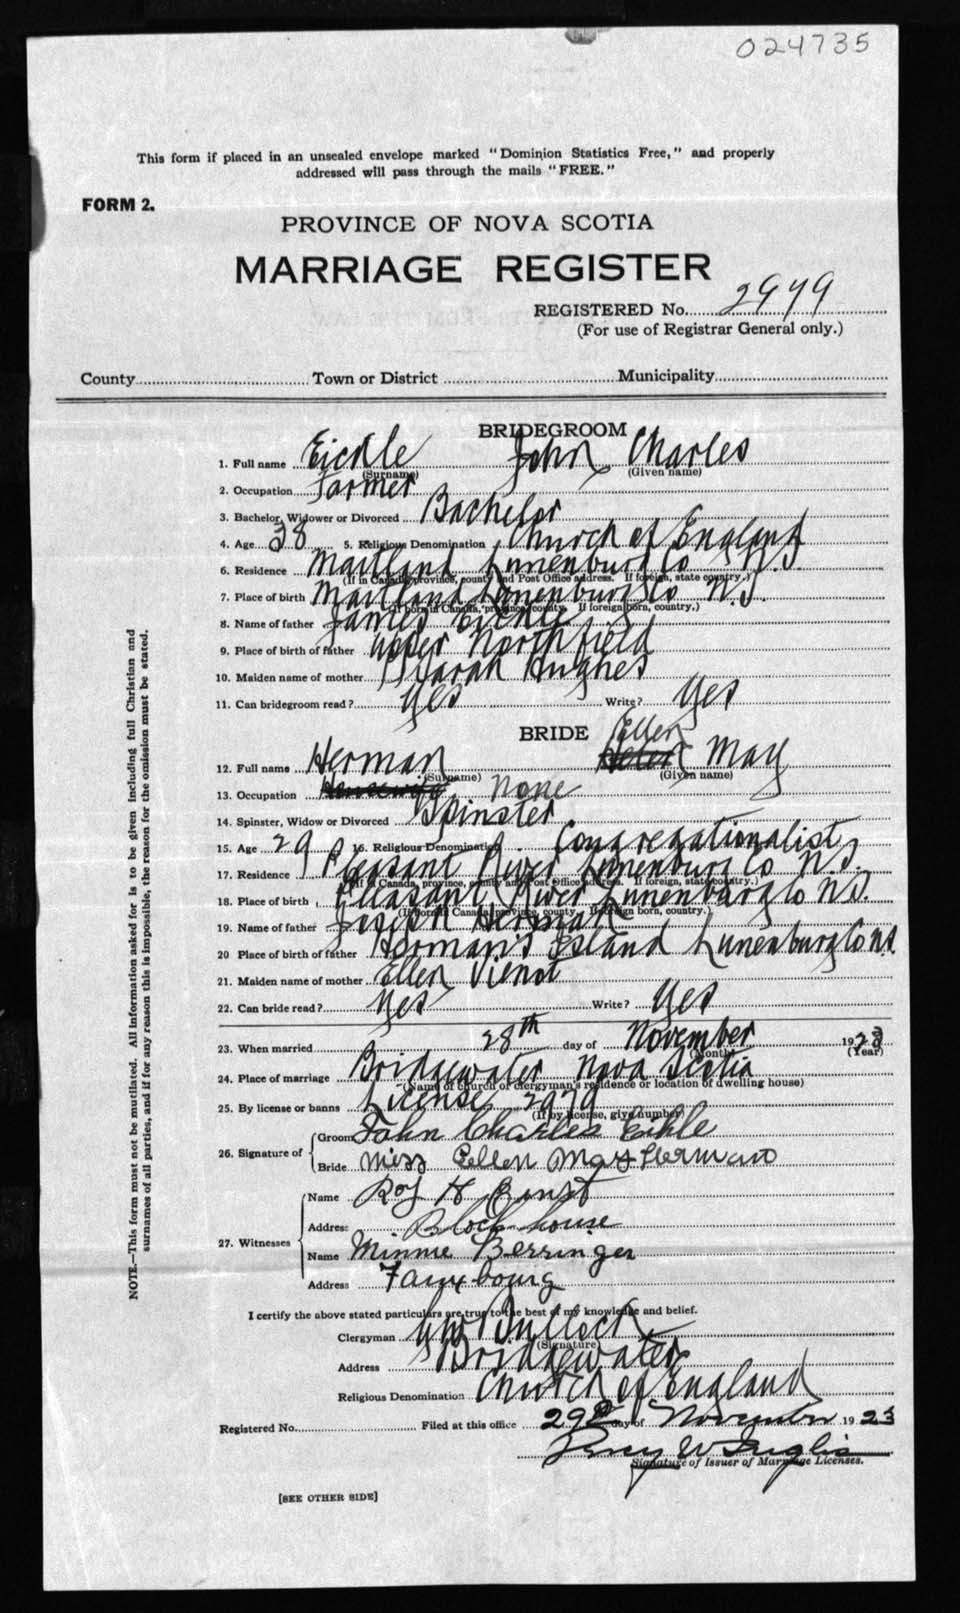 024735
This form if placed in an unsealed envelope marked "Dominion Statistics Free," and properly
addressed will pass through the mails "FREE."
FORM 2.
PROVINCE OF NOVA SCOTIA
MARRIAGE REGISTER
REGISTERED No. 2979
(For use of Registrar General only.)
County Town or District Municipality
BRIDEGROOM
1. Full name Eickle John Charles
(Surname) (Given name)
2. Occupation Farmer
3. Bachelor, Widower or Divorced Bachelor
4. Age 38 5. Religious Denomination Church of England
6. Residence Maitland Lunenburg Co N.S.
(If in Canada, province, county and Post Office address. If foreign, state country.)
7. Place of birth Maitland Lunenburg Co N.S.
(If born in Canada, province, county. If foreign born, country.)
8. Name of father James
9. Place of birth of father Upper Northfield
10. Maiden name of mother Sarah Hughes
11. Can bridegroom read? Yes Write? Yes
BRIDE Ellen
12. Full name Herman Helen May
(Surname) (Given name)
13. Occupation Housewife None
14. Spinster, Widow or Divorced Spinster
15. Age 29 16. Religious Denomination Congregationalist
17. Residence Pleasant River Lunenburg Co N.S.
(If in Canada, province, county and Post Office address. If foreign, state country.)
18. Place of birth Pleasant River Lunenburg Co N.S.
(If born in Canada, province, county. If foreign born, country.)
19. Name of father Joseph Herman
20 Place of birth of father Herman's Island Lunenburg Co N.S.
21. Maiden name of mother Ellen Vienot
22. Can bride read? Yes Write? Yes
23. When married 28th day of November 1923
(Month) (Year)
24. Place of marriage Bridgewater Nova Scotia
(Name of church or clergyman's residence or location of dwelling house)
25. By license or banns License 2979
(If by license, give number)
26. Signature of Groom John Charles Eikle
Bride Miss Ellen May Herman
27. Witnesses Name Roy H Ernst
Address Blockhouse
Name Minnie Berringer
Address Fauxbourg
I certify the above stated particulars are true to the best of my knowledge and belief.
Clergyman Bullock
(Signature)
Address Bridgewater
Religious Denomination Church of England
Registered No. Filed at this office 29 day of November 1923
Signature of Issuer of Marriage Licenses.
[SEE OTHER SIDE]
NOTE.—This form must not be mutilated. All information asked for is to be given including full Christian and
surnames of all parties, and if for any reason this is impossible, the reason for the omission must be stated.